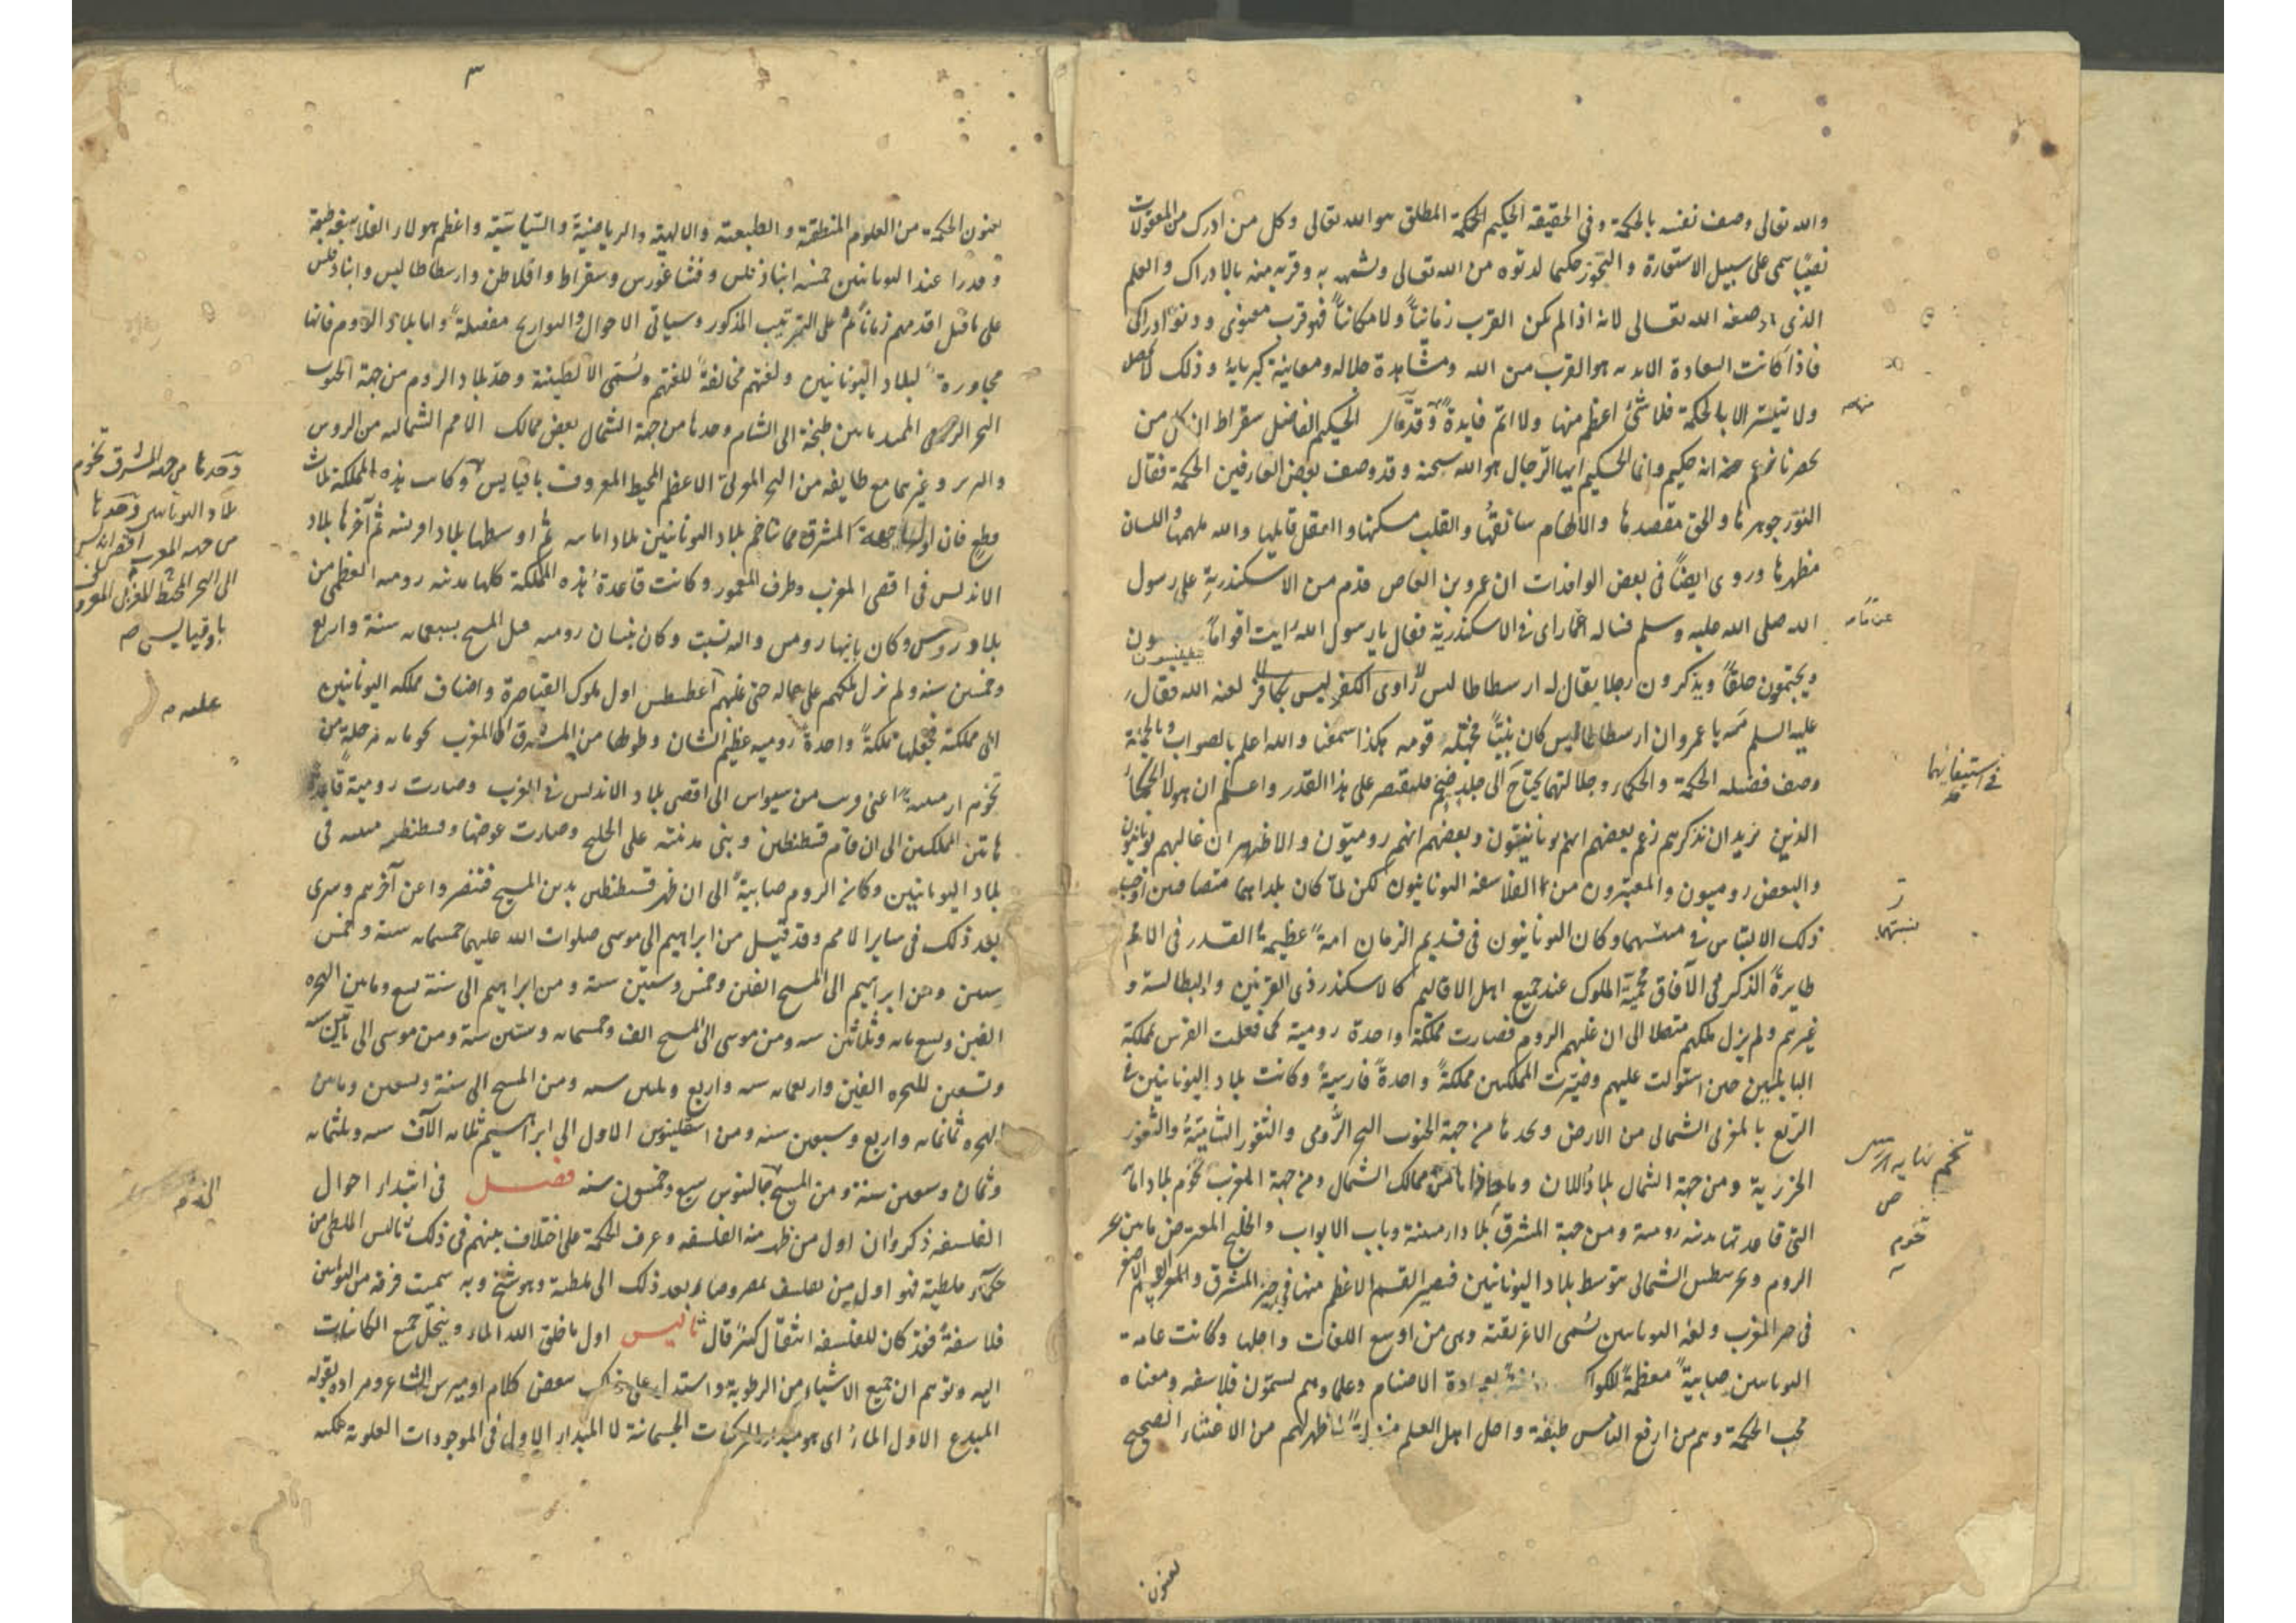 والله تعالى وصف نفسه بالحكمة وفى الحقيقة الحكيم المطلق هو الله تعالى وكل من ادرك من المعقولات
نصيبا سمى على سبيل الاستعارة والتجوز حكيما لدنوه من الله تعالى وتشبهه به وقربه منه بالادراك والعلم
الذى صفة الله تعالى لانه اذا لم يكن القرب زمانيا ولا مكانيا فهو قرب معنوى ودنو ادراكى
فاذا كانت السعادة الابديه هو القرب من الله ومشاهدة جلاله ومعاينة كبريايه وذلك لا يحصل
ولا يتيسر الا بالحكمة فلا شئ اعظم منها ولا اتم فايدة وقد قال الحكيم الفاضل سقراط ان كل من
انه حكيم وانما الحكيم ايها الرجال هو الله سبحنه وقد وصف بعض العارفين الحكمة فقال
النور جوهرها والحق مقصدها والالهام سائقها والقلب مسكنها والعقل قابلها والله ملهمها واللسان
مظهرها وروى ايضا فى بعض الوافدات ان عمرو بن العاص قدم من الاسكندرية على رسول
الله صلى الله عليه وسلم فساله عما راى فى الاسكندرية فقال يا رسول الله رايت اقواما
ويجتمعون حلقا ويذكرون رجلا يقال له ارسطاطاليس لعنه الله فقال
عليه السلم مه يا عمرو ان ارسطاطاليس كان نبيا فجهله قومه هكذا سمعنا والله اعلم بالصواب وبالجملة
وصف فضيله الحكمة والحكماء وجلالتهما يحتاج الى جلد ضخم فلنقتصر على هذا القدر واعلم ان هولا الحكماء
الذين نريد ان نذكرهم زعم بعضهم انهم يونانيون وبعضهم انهم روميون والاظهر ان غالبهم يونانيون
والبعض روميون والمعتبرون من الفلاسفه اليونانيون لكن لما كان بلداهما متصاقبين اوجب
ذلك الالتباس فى وكان اليونانيون فى قديم الزمان امة عظيمة القدر فى الامم
طايرة الذكر فى الآفاق الملوك عند جميع اهل الاقاليم كالاسكندر ذى القرنين والبطالسة و
غيرهم ولم يزل ملكهم متصلا الى ان غلبهم الروم فصارت مملكة واحدة رومية كما فعلت الفرس بمملكة
البابليين حين استولت عليهم وصيرت المملكتين مملكة واحدة فارسية وكانت بلاد اليونانيين فى
الربع المغربى الشمالى من الارض وتحدها من جهة الجنوب البحر الرومى والثغور الشامية والثغور
الجزرية ومن جهة الشمال بلاد اللان وما حاذاها من ممالك الشمال ومن جهة المغرب تخوم بلاد
التى قاعدتها مدينه رومية ومن جهة المشرق بلاد ارمينية وباب الابواب والخليج المعترض ما بين بحر
الروم وبحر نيطس الشمالى يتوسط بلاد اليونانيين فيصير القسم الاعظم منها فى حيز المشرق والقسم الاصغر
فى حيز المغرب ولغة اليونانيين تسمى الاغريقية وهى من اوسع اللغات واجلها وكانت عامة
اليونانيين صابية معظمة للكواكب بعبادة الاصنام وعلماوهم يسمون فلاسفه ومعناه
محب الحكمة وهم من ارفع الناس طبقة واجل اهل العلم منزلة لما ظهر لهم من الاعتناء الصحيح
فى استيفائها
نسبتهما
تخوم
بفنون
٣
بفنون الحكمة من العلوم المنطقية والطبيعية والالهية والرياضية والسياسية واعظم هولاء الفلاسفه طبقة
وقدرا عند اليونانيين خمسة ابناذقلس وفيثاغورس وسقراط وافلاطن وارسطاطاليس وابناذقلس
على ما قيل اقدمهم زمانا ثم على الترتيب المذكور وسياتى الاحوال والتواريخ مفصلة واما بلاد الروم فانها
مجاورة لبلاد اليونانيين ولغتهم مخالفة للغتهم وتسمى الالطينية وحد بلاد الروم من جهة الجنوب
البحر الرومى الممتد ما بين طنجة الى الشام وحدها من جهة الشمال بعض ممالك الامم الشماليه من الروس
وغيرهما مع طايفه من البحر المغربى الاعظم المحيط المعروف باقيانس وكانت هذه المملكة ثلاث
قطع فان اولها جهة المشرق مما يتاخم بلاد اليونانيين ثم اوسطها بلاد افرنسه ثم آخرها بلاد
الاندلس فى اقصى المغرب وطرف المعمور وكانت قاعدة هذه المملكة كلها مدينه روميه العظمى من
وكان بانيها رومس واليه نسبت وكان بنيان روميه قبل المسيح بسبعمايه سنة واربع
وخمسين سنه ولم يزل ملكهم على حاله حتى غلبهم اغسطس اول ملوك القياصرة واضاف مملكه اليونانيين
الى مملكته فجعلها مملكة واحدة روميه عظيم الشان وطولها من المشرق الى المغرب نحو مايه مرحلة من
تخوم ارمينية اعنى وسه من سيواس الى اقصى بلاد الاندلس فى الغرب وصارت رومية قاعدة
هاتين المملكتين الى ان قام قسطنطين وبنى مدينته على الخليج وصارت عوضها وقسطنطينيه فى
بلاد اليونانيين وكانت الروم صابية الى ان ظهر قسطنطين بدين المسيح فتنصروا عن آخرهم وسرى
بعد ذلك فى ساير الامم وقد قيل من ابراهيم الى موسى صلوات الله عليهما خمسمايه سنة وخمس
سنين ومن ابراهيم الى المسيح الفين وخمس وستين سنة ومن ابراهيم الى سنة تسع ومايتين الهجره
الفين وتسع مايه وثلاثين سنه ومن موسى الى المسيح الف وخمسمايه وستين سنة ومن موسى الى مايتين سنه
وتسعين للهجره الفين واربعمايه سنه واربع وثلثين سنه ومن المسيح الى سنة وتسعين ومايتين
الهجره ثمانمايه واربع وسبعين سنه ومن اسقلينوس الاول الى ابراهيم ثلاثه الآف سنه وثلثمايه
وثمان وسبعين سنة ومن المسيح جالينوس سبع وخمسون سنه فصل فى ابتداء احوال
الفلسفه ذكروا ان اول من ظهر منه الفلسفه وعرف الحكمة على اختلاف بينهم فى ذلك ثاليس الملطى من
حكماء ملطية فهو اول من تفلسف بمصر وصار بعد ذلك الى ملطية وهو شيخ وبه سميت فرقة من اليونانيين
فلاسفة فقد كان للفلسفه انتقال كثير قال ثاليس اول ما خلق الله الماء وينحل جميع الكائنات
اليه وتوهم ان جميع الاشياء من الرطوبة واستدل على ذلك ببعض كلام اوميرس الشاعر ومراده بقوله
المبدع الاول الماء اى هو مبدا المركبات الجسمانية لا المبدا الاول فى الموجودات العلوية لكنه
وحدها من جهة المشرق تخوم
بلاد اليونانيين وحدها
من جهه المغرب اقصى الاندلس
الى البحر المحيط المغربى المعروف
باوقيانس